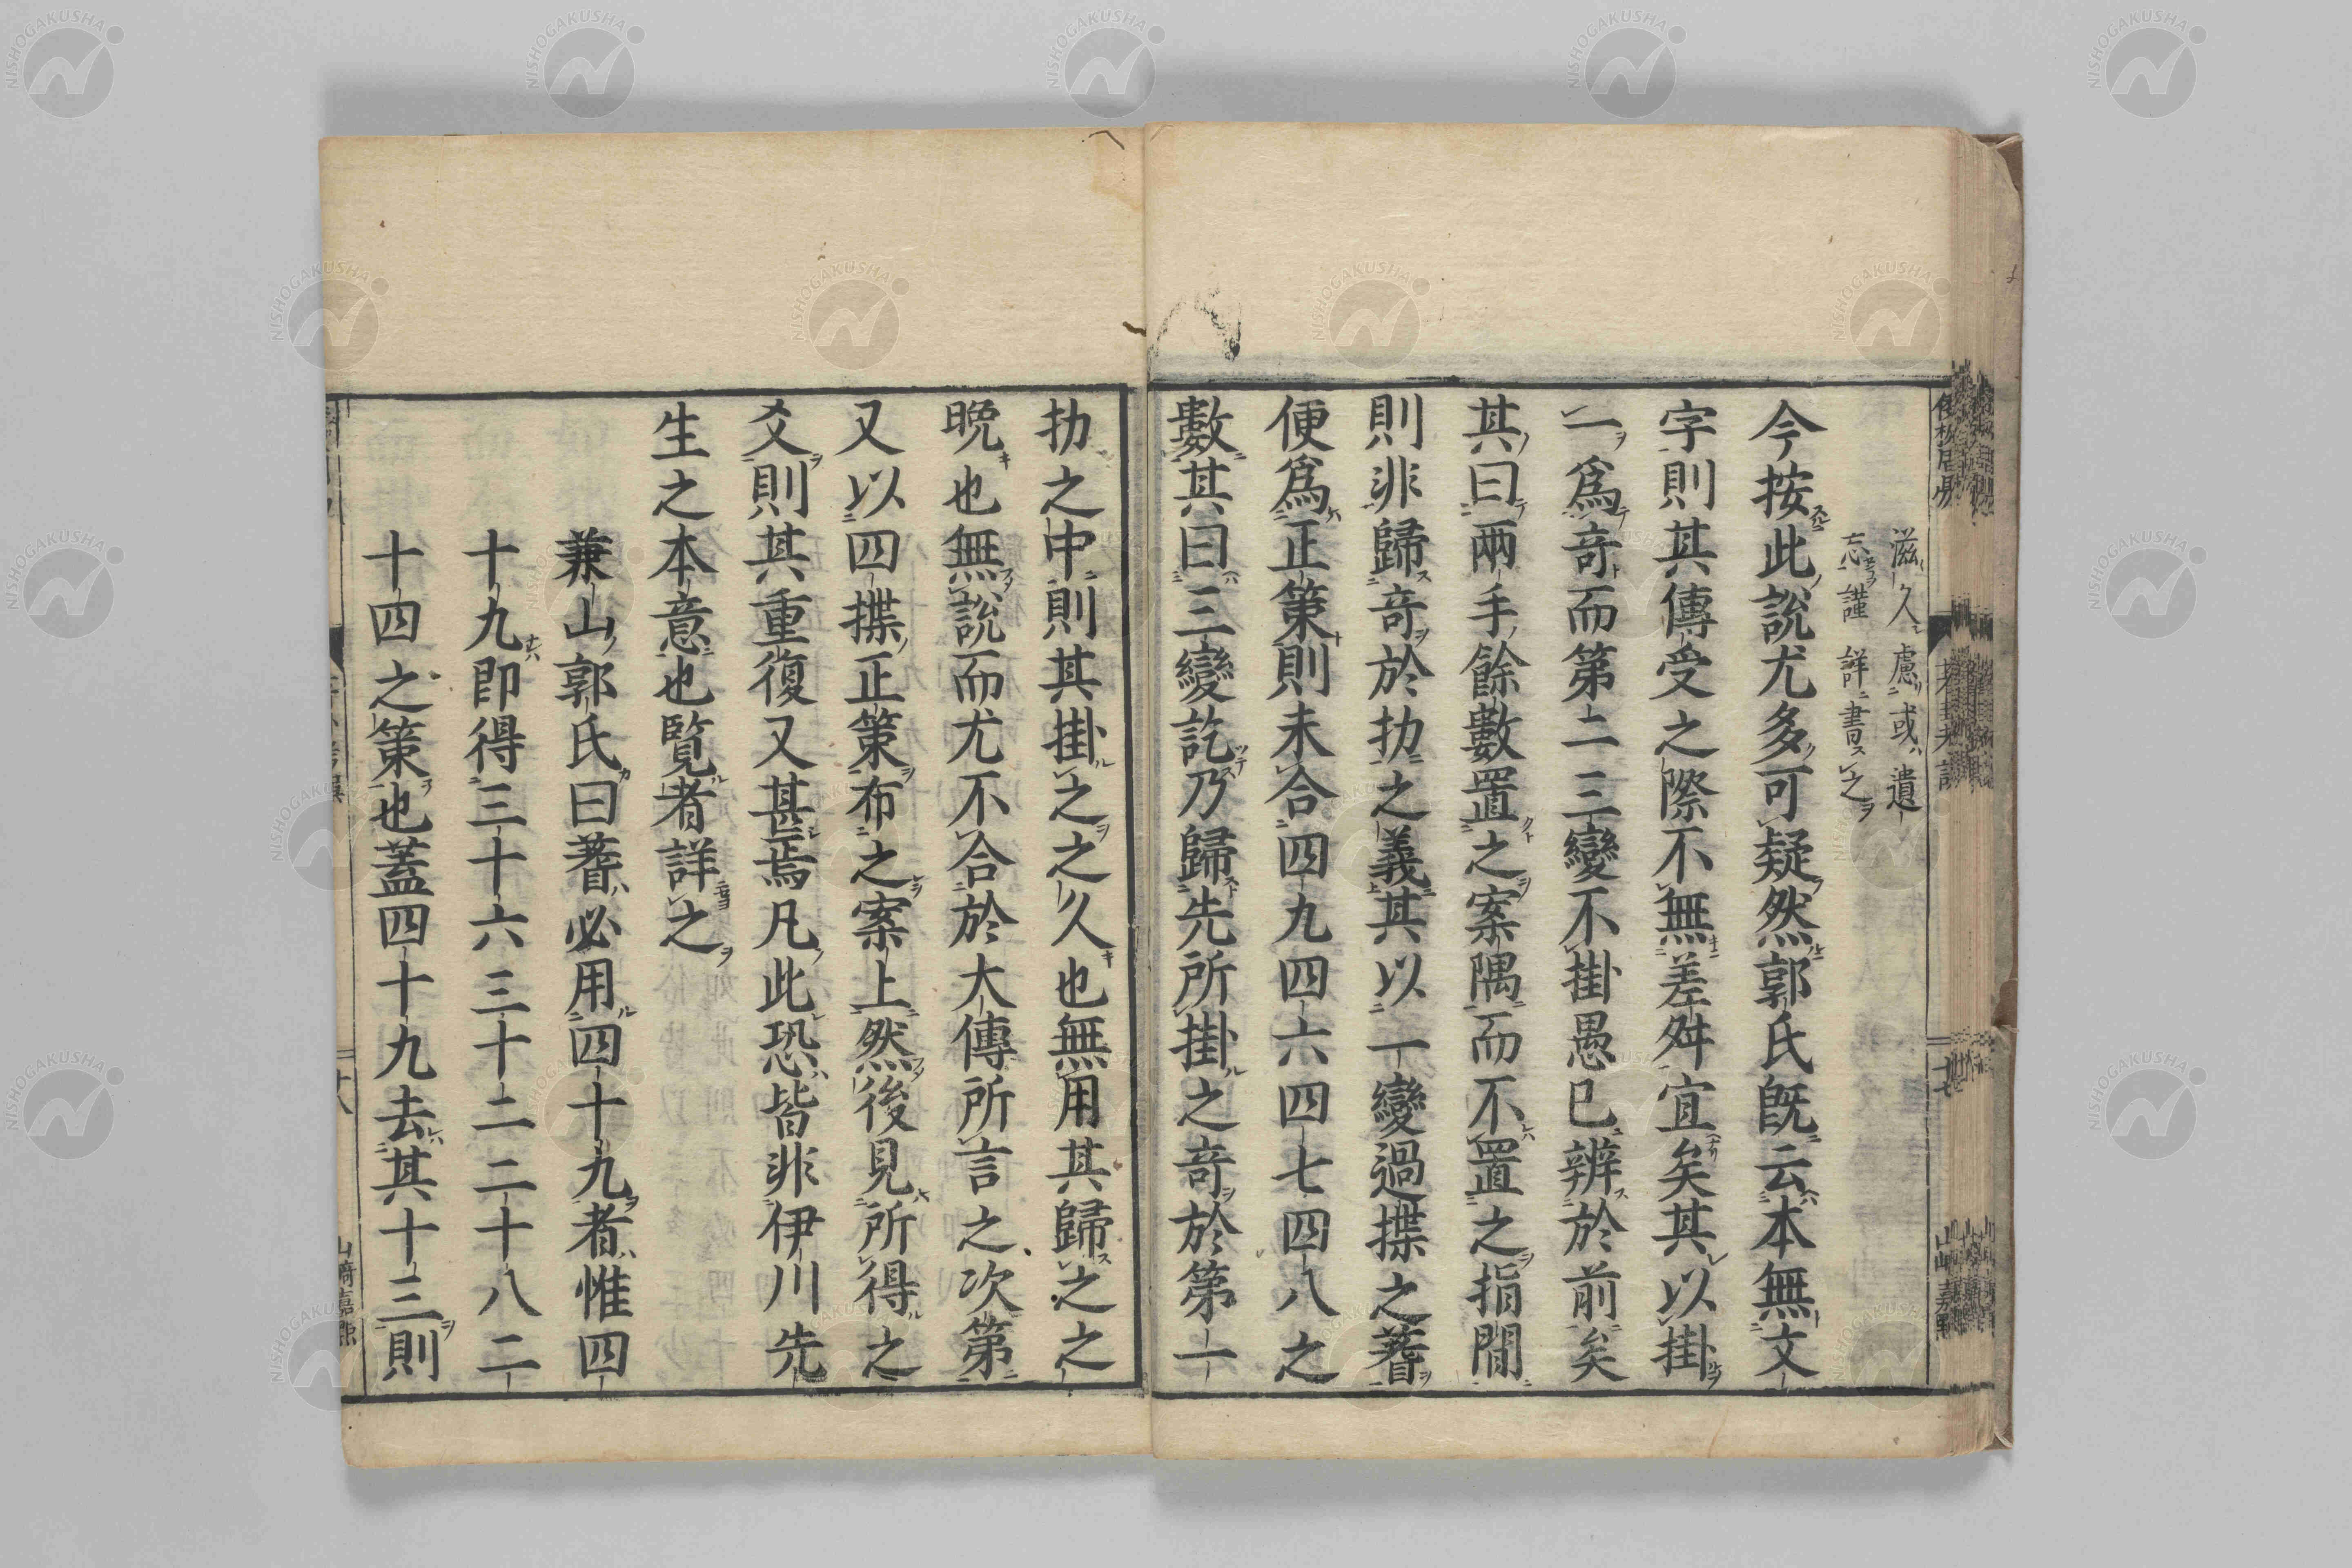 滋久慮或遺
忘謹詳書之
今按此說尤多可疑然郭氏旣云本無文
字則其傳受之際不無差舛宜矣其以掛
一爲奇而第二三變不掛愚已辨於前矣
其曰兩手餘數置之案隅而不置之指閒
則非歸奇於扐之義其以一變過揲之蓍
便爲正策則未合四九四六四七四八之
數其曰三變訖乃歸先所掛之奇於第一
扐之中則其掛之之久也無用其歸之之
晚也無說而尤不合於大傳所言之次第
又以四揲正策布之案上然後見所得之
爻則其重復又甚焉凡此恐皆非伊川先
生之本意也覽者詳之
兼山郭氏曰蓍必用四十九者惟四
十九即得三十六三十二二十八二
十四之策也蓋四十九去其十三則
山崎嘉點
NISHOGAKUSHA